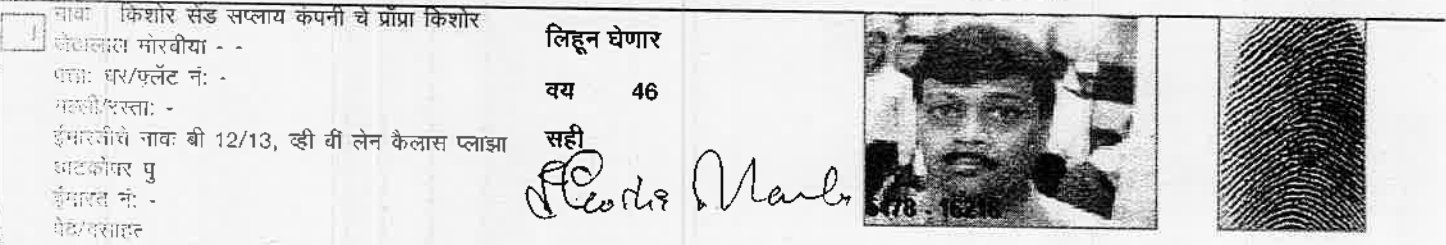 1
नावः किशोर सेंड सप्लाय कंपनी चे प्रॉप्रा किशोर
जेठालाल मोरबीया - -
पत्ताः घर/फ्लॅट नं: -
गल्ली/रस्ता: -
ईमारतीचे नावः बी 12/13, व्ही वीं लेन कैलास प्लांझा
घाटकोपर पु
ईमारत नं: -
पेठ/वसाहत
लिहून घेणार
वय 46
सही
5478 - 16216